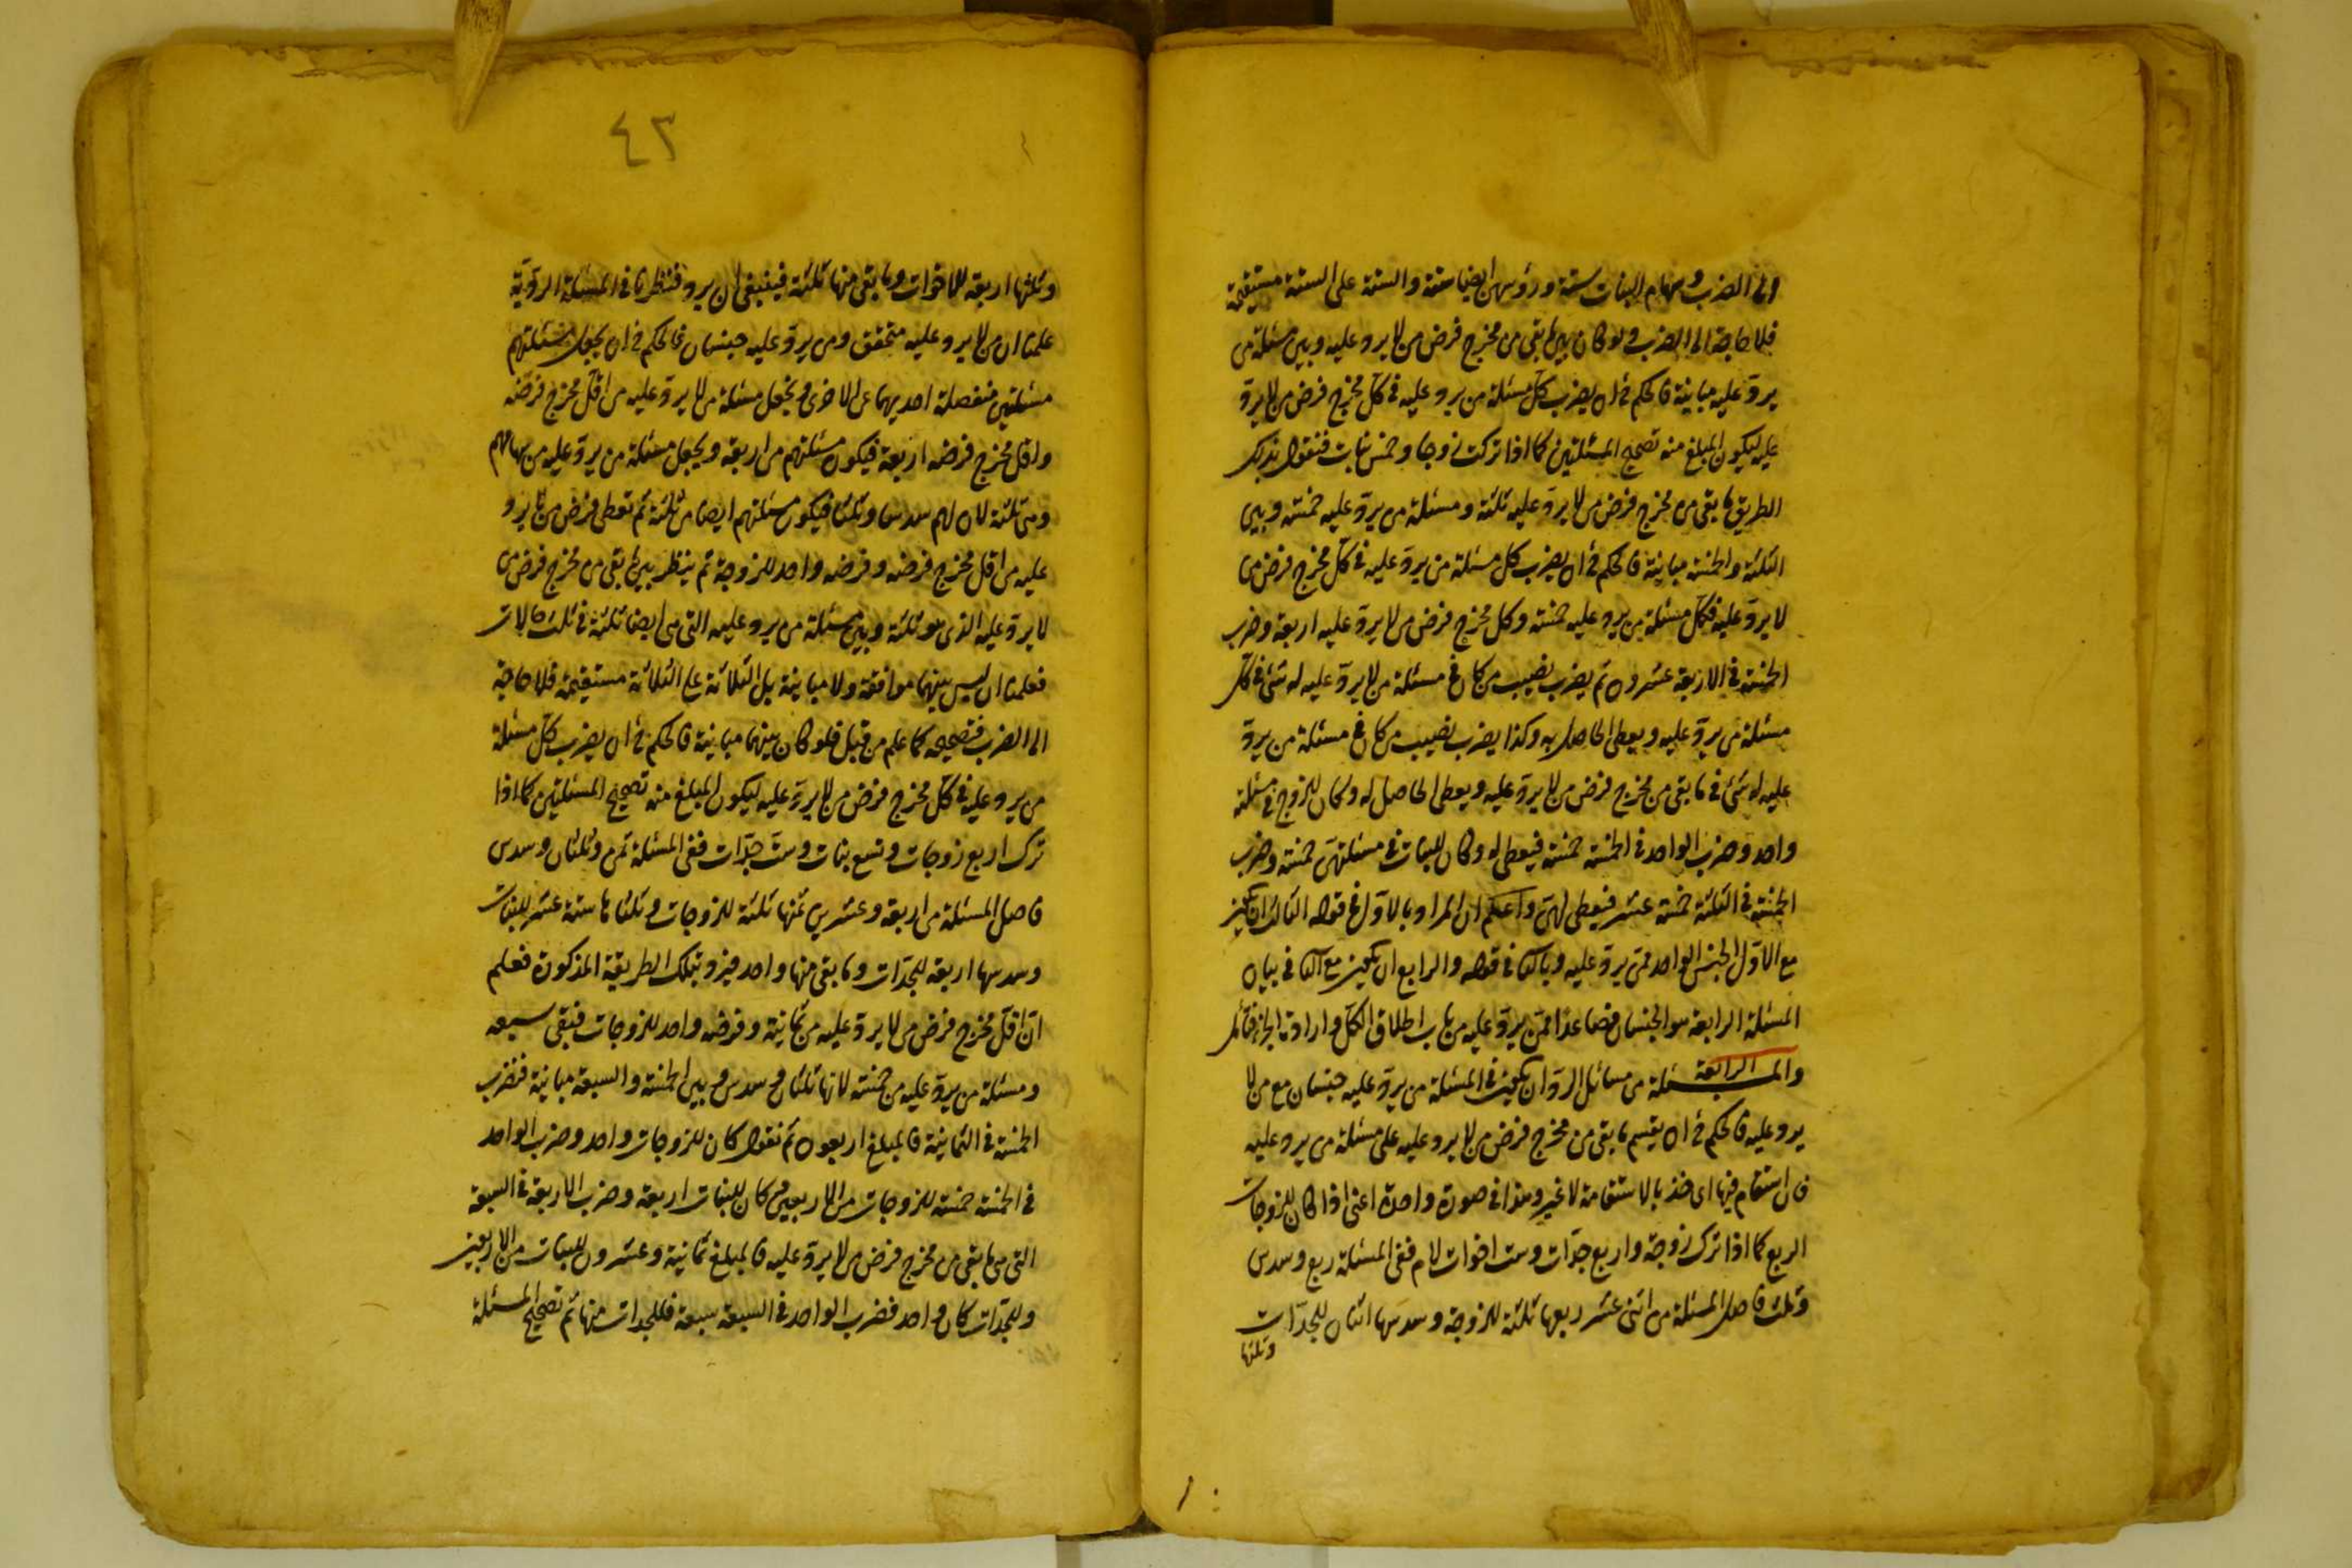 الى الضرب وسهام البنات ستة ورؤسهن ايضا ستة والستة على الستة مستقيمة
فلا حاجة الى الضرب ولو كان بين ما بقى من مخرج فرض من لا يرد عليه وبين مسئلة من
يردّ عليه مباينة فالحكم فى ان يضرب كل مسئلة من يرد عليه فى كلّ مخرج فرض من لا يردّ
عليه ليكون المبلغ منه تصحيح المسئلتين كما اذا تركت زوجا وخمس بنات فنقول بذلك
الطريق ما بقى من مخرج فرض من لا يردّ عليه ثلثة ومسئلة من يردّ عليه خمسة وبين
الثلثة والخمسة مباينة فالحكم فى ان يضرب كل مسئلة من يردّ عليه فى كلّ مخرج فرض من
لا يردّ عليه فكلّ مسئلة من يرد عليه خمسة وكل مخرج فرض من لا يردّ عليه اربعة وضرب
الخمسة فى الاربعة عشرون ثم يضرب نصيب من كان فى مسئلة من لا يردّ عليه له شئ فى كلّ
مسئلة من يردّ عليه ويعطى الحاصل به وكذا يضرب نصيب من كان فى مسئلة من يردّ
عليه له شئ فى ما بقى من مخرج فرض من لا يردّ عليه ويعطى الحاصل له وكان للزوج فى مسئلته
واحد وضرب الواحد فى الخمسة خمسة فيعطى له وكان للبنات فى مسئلتهنّ خمسة وضرب
الخمسة فى الثلثة خمسة عشر فيعطى لهنّ واعلم ان المراد بالاوّل فى قوله الثالث ان يكون
مع الاوّل الجنس الواحد ممّن يردّ عليه وبالثانى فى قوله والرابع ان يكون مع الثانى بيان
المسئلة الرابعة هو الجنسان فصاعدًا ممّن يردّ عليه من باب اطلاق الكلّ وارادة الجزء فتأمل
والمسئلة الرابعة من مسائل الردّ ان يكون فى المسئلة من يردّ عليه جنسان مع من لا
يرد عليه فالحكم فى ان يقسم ما بقى من مخرج فرض من لا يرد عليه على مسئلة من يرد عليه
فان استقام فيها اى فخذ بالاستقامة لا غير وهذا فى صورة واحدة اعنى اذا كان للزوجات
الربع كما اذا ترك زوجة واربع جدّات وست اخوات لام ففى المسئلة ربع وسدس
وثلث فاصل المسئلة من اثنى عشر ربعها ثلثة للزوجة وسدسها اثنان للجدّات
وثلثها
٤٣
وثلثها اربعة للاخوات وما بقى منها ثلثة فينبغى ان يرد فنظرنا فى المسئلة الردّيّة
علمنا ان من لا يرد عليه متحقق ومن يردّ عليه جنسان فالحكم فى ان يجعل مسئلتهم
مسئلتين منفصلة احديهما عن الاخرى ويجعل مسئلة من لا يردّ عليه من اقلّ مخرج فرضه
واقل مخرج فرضه اربعة فيكون مسئلتهم من اربعة ويجعل مسئلة من يردّ عليه من سهامهم
وهى ثلثة لان لهم سدسا وثلثا فيكون مسئلتهم ايضا من ثلثة ثم تعطى فرض من لا يرد
عليه من اقل مخرج فرضه وفرضه واحد للزوجة ثم ينظر بين ما بقى من مخرج فرض من
لا يردّ عليه الذى هو ثلثة وبين مسئلة من يرد عليه التى هى ايضا ثلثة فى ثلث حالات
فعلمنا ان ليس بينهما موافقة ولا مباينة بل الثلاثة على الثلاثة مستقيمة فلا حاجة
الى الضرب فتصحيحه كما علم من قبل فلو كان بينهما مباينة فالحكم فى ان يضرب كلّ مسئلة
من يرد عليه فى كلّ مخرج فرض من لا يردّ عليه ليكون المبلغ منه تصحيح المسئلتين كما اذا
ترك اربع زوجات وتسع بنات وستّ جدّات ففى المسئلة ثمن وثلثان وسدس
فاصل المسئلة من اربعة وعشرين ثمنها ثلثة للزوجات وثلثاها ستة عشر للبنات
وسدسها اربعة للجدّات وما بقى منها واحد فيرد بتلك الطريقة المذكورة فعلم
انّ اقلّ مخرج فرض من لا يردّ عليه من ثمانية وفرضه واحد للزوجات فبقى سبعة
ومسئلة من يردّ عليه من خمسة لانها ثلثان وسدس وبين الخمسة والسبعة مباينة فنضرب
الخمسة فى الثمانية فالمبلغ اربعون ثم نقول كان للزوجات واحد وضرب الواحد
فى الخمسة خمسة للزوجات من الاربعين وكان للبنات اربعة وضرب الاربعة فى السبعة
التى هى ما بقى من مخرج فرض من لا يردّ عليه فالمبلغ ثمانية وعشرون للبنات من الاربعين
وللجدّات كان واحد فضرب الواحد فى السبعة سبعة فللجدات منها ثم تصحيح المسئلة